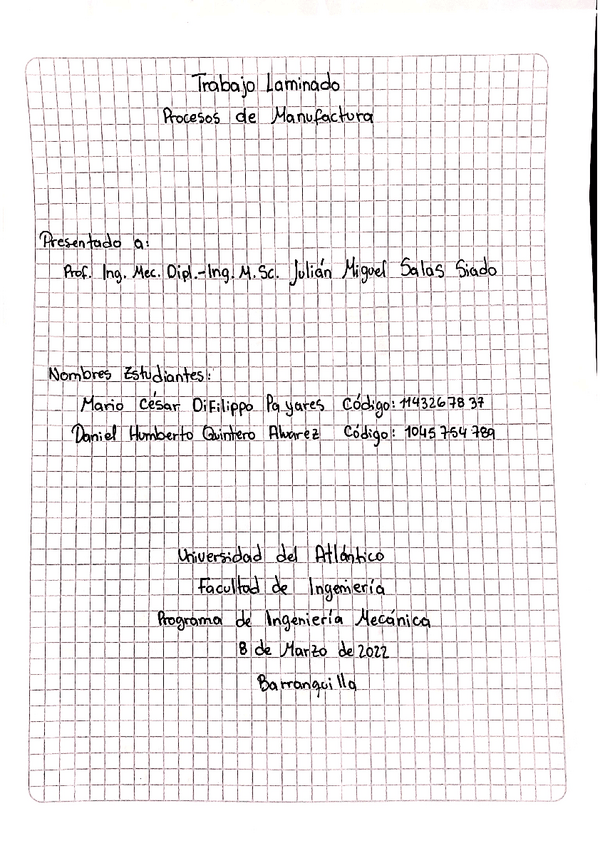 Trabajo Laminado
Procesos de Manufactura
Presentado a:
Prof. Ing. Mec. Dipl.-Ing. M.Sc. Julián Miguel Salas Siado
Nombres Estudiantes:
Mario César DiFilippo Payares Código: 1143267837
Daniel Humberto Quintero Alvarez Código: 1045754789
Universidad del Atlántico
Facultad de Ingeniería
Programa de Ingeniería Mecánica
8 de Marzo de 2022
Barranquilla